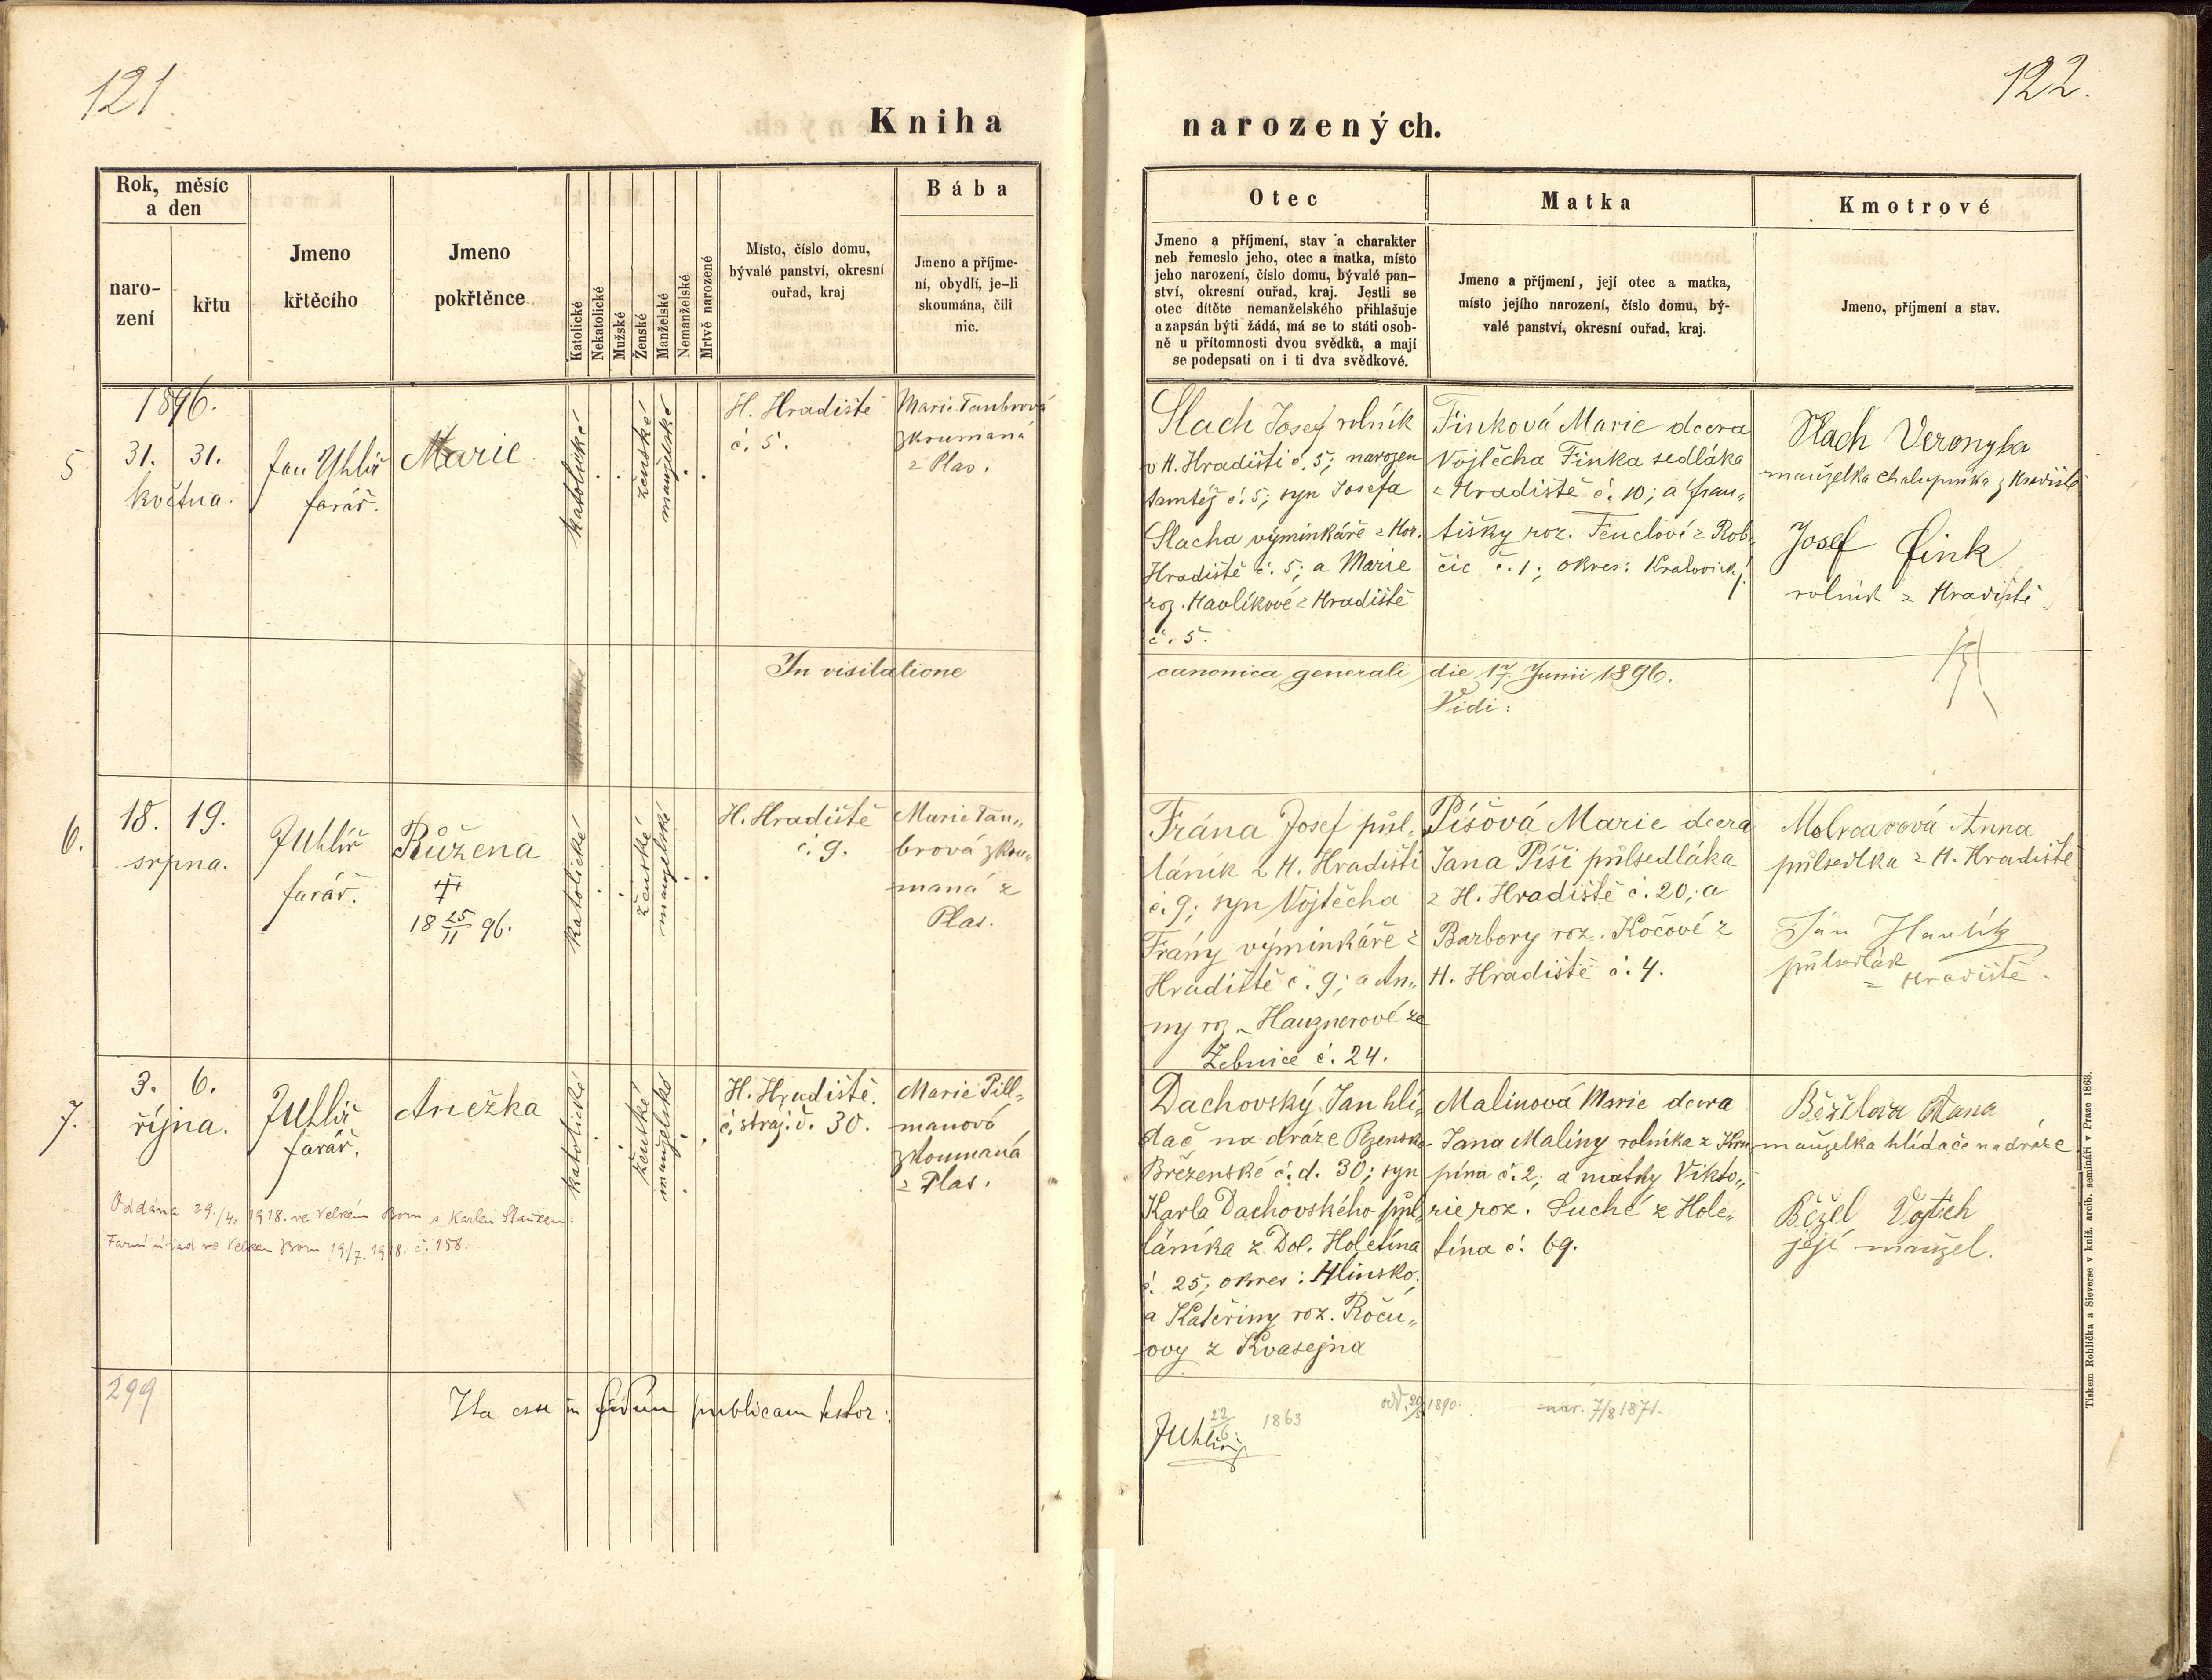 121
Kniha
Rok, měsíc
a den
naro-
zení
křtu
Jmeno
křtěcího
Jmeno
pokřtěnce
Katolické
Nekatolické
Mužské
Ženské
Manželské
Nemanželské
Mrtvě narozené
Místo, číslo domu,
bývalé panství, okresní
ouřad, kraj
Bába
Jmeno a příjme-
ní, obydlí, je-li
skoumána, čili
nic.
5
1896.
31. 31.
května.
Jan Uhlíř
farář.
Marie
katolické
ženské
manželské
H. Hradiště
č. 5.
Marie Taubrová
zkoumaná
z Plas.
In visitatione
6.
18. 19.
srpna.
JUhlíř
farář.
Růžena
18 25/11 96.
katolické
ženské
manželské
H. Hradiště
č. 9.
Marie Tau„
brová zkou„
maná z
Plas.
7.
3. 6.
října.
JUhlíř
farář.
Anežka
katolické
ženské
manželské
H. Hradiště.
č. straž. d. 30.
Marie Pill„
manová
zkoumaná
z Plas.
Oddána 29./4. 1918. ve Velkém Boru s Karlem
Farní úřad ve Velkém Boru 19./7. 1918. č. 158.
299
Ita esse in fidem publicam testor:
122.
narozených.
Otec
Jmeno a příjmení, stav a charakter
neb řemeslo jeho, otec a matka, místo
jeho narození, číslo domu, bývalé pan-
ství, okresní ouřad, kraj. Jestli se
otec dítěte nemanželského přihlašuje
a zapsán býti žádá, má se to státi osob-
ně u přítomnosti dvou svědků, a mají
se podepsati on i ti dva svědkové.
Matka
Jmeno a příjmení, její otec a matka,
místo jejího narození, číslo domu, bý-
valé panství, okresní ouřad, kraj.
Kmotrové
Jmeno, příjmení a stav.
Slach Josef rolník
v H. Hradišti č. 5; narozen
tamtéž č. 5; syn Josefa
Slacha výminkáře z Hor.
Hradiště č. 5; a Marie
roz. Havlíkové z Hradiště
č. 5.
Finková Marie dcera
Vojtěcha Finka sedláka
z Hradiště č. 10; a Fran„
tišky roz. Fenclové z Rob„
čic č. 1; okres: Kralovick/.
Slach Veronyka
manželka chalupníka z Hradiště
Josef Fink
rolník z Hradiště.
canonica generali die 17. Junii 1896.
Vidi:
Frána Josef půl„
láník z H. Hradiště
č. 9; syn Vojtěcha
Frány výminkáře z
Hradiště č. 9; a An„
ny roz. Hauznerové ze
Žebnice č. 24.
Píšová Marie dcera
Jana Píši půlsedláka
z H. Hradiště č. 20; a
Barbory roz. Kočové z
H. Hradiště č. 4.
Anna
půlsedlka z H. Hradiště
Ján Havlík
půlsedlák
z Hradiště.
Dachovský Jan hlí„
dač na dráze Plzensko-
Březenské č. d. 30; syn
Karla Dachovského půl„
láníka z Dol. Holetína
č. 25, okres: Hlinsko;
a Kateřiny roz. Roču„
ovy z Kvasejna
Malinová Marie dcera
Jana Maliny rolníka z Kru
pína č. 2; a matky Vikto„
rie roz. Suché z Hole„
tína č. 69.
Běželova Anna
manželka hlídače na dráze
Běžel Vojtěch
její manžel.
22/6 1863
odd. 20/5 1890.
nar. 7/8 1871.
JUhlíř
Tiskem Rohlíčka a Sieverse v kníž. arcib. semináři v Praze 1863.